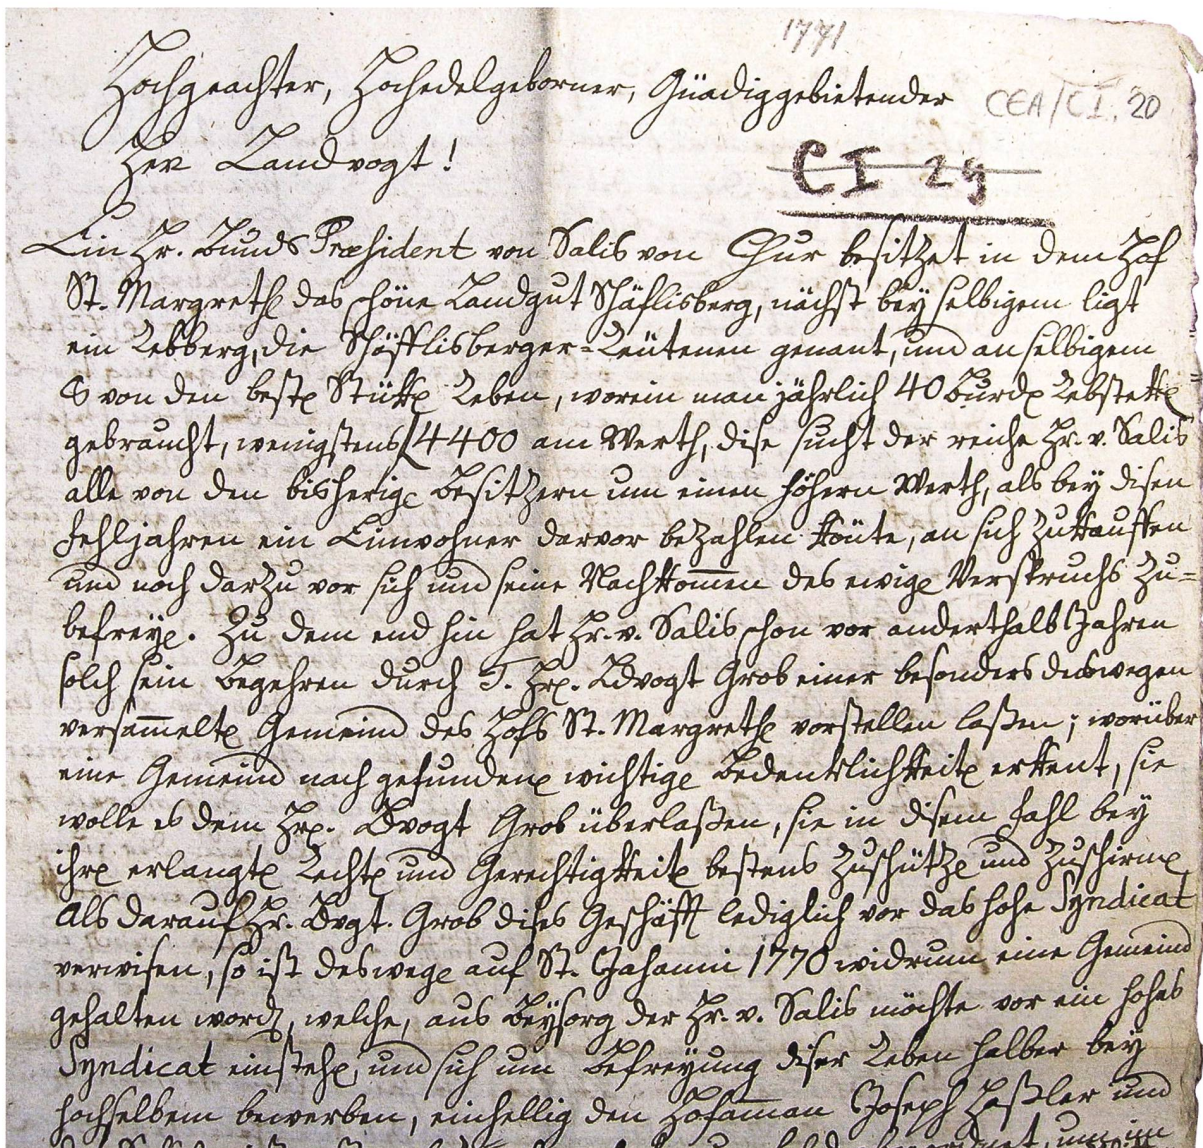 1771
Hochgeachter, Hochedelgeborner, Gnädiggebietender
CEA/CI. 20
Her Landvogt!
CI 29
Ein Hr. Bunds Præsident von Salis von Chur besitzet in dem Hof
St. Margrethe das schöne Landgut Schäflisberg, nächst bey selbigem ligt
ein Rebberg, die Schäfflisberger-Leütenen genant, und an selbigem
8 von den beste Stükke Reben, worein man jährlich 40 Burde Rebstekke
gebraucht, wenigstens f 4400 am Werth, dise sucht der reiche Hr. v. Salis
alle von den bisherige Besitzern um einen höhern Werth, als bey disen
Fehljahren ein Einwohner darvor bezahlen könte, an sich zukauffen
und noch darzu vor sich und seine Nachkomen des ewige Verspruchs zu=
befreye. Zu dem end hin hat Hr. v. Salis schon vor anderthalb Jahren
solch sein Begehren durch T. Hre. Ldvogt Grob einer besonders deswegen
versamelte Gemeind des Hofs St. Margrethe vorstellen laßen; worüber
eine Gemeind nach gefundene wichtige Bedenklichkeite erkent, sie
wolle es dem Hre. Ldvogt Grob überlaßen, sie in disem Fahl bey
ihre erlangte Rechte und Gerechtigkeite bestens zuschütze und zuschirme
Als darauf Hr. Ldvgt. Grob dises Geschäfft lediglich vor das hohe Syndicat
verwisen, so ist deswege auf St. Johanni 1770 widrum eine Gemeind
gehalten worde, welche, aus Beysorg der Hr. v. Salis möchte vor ein hohes
Syndicat einstehe, und sich um Befreyung diser Reben halber bey
hochselbem bewerben, einhellig den Hofaman Joseph Haßler und